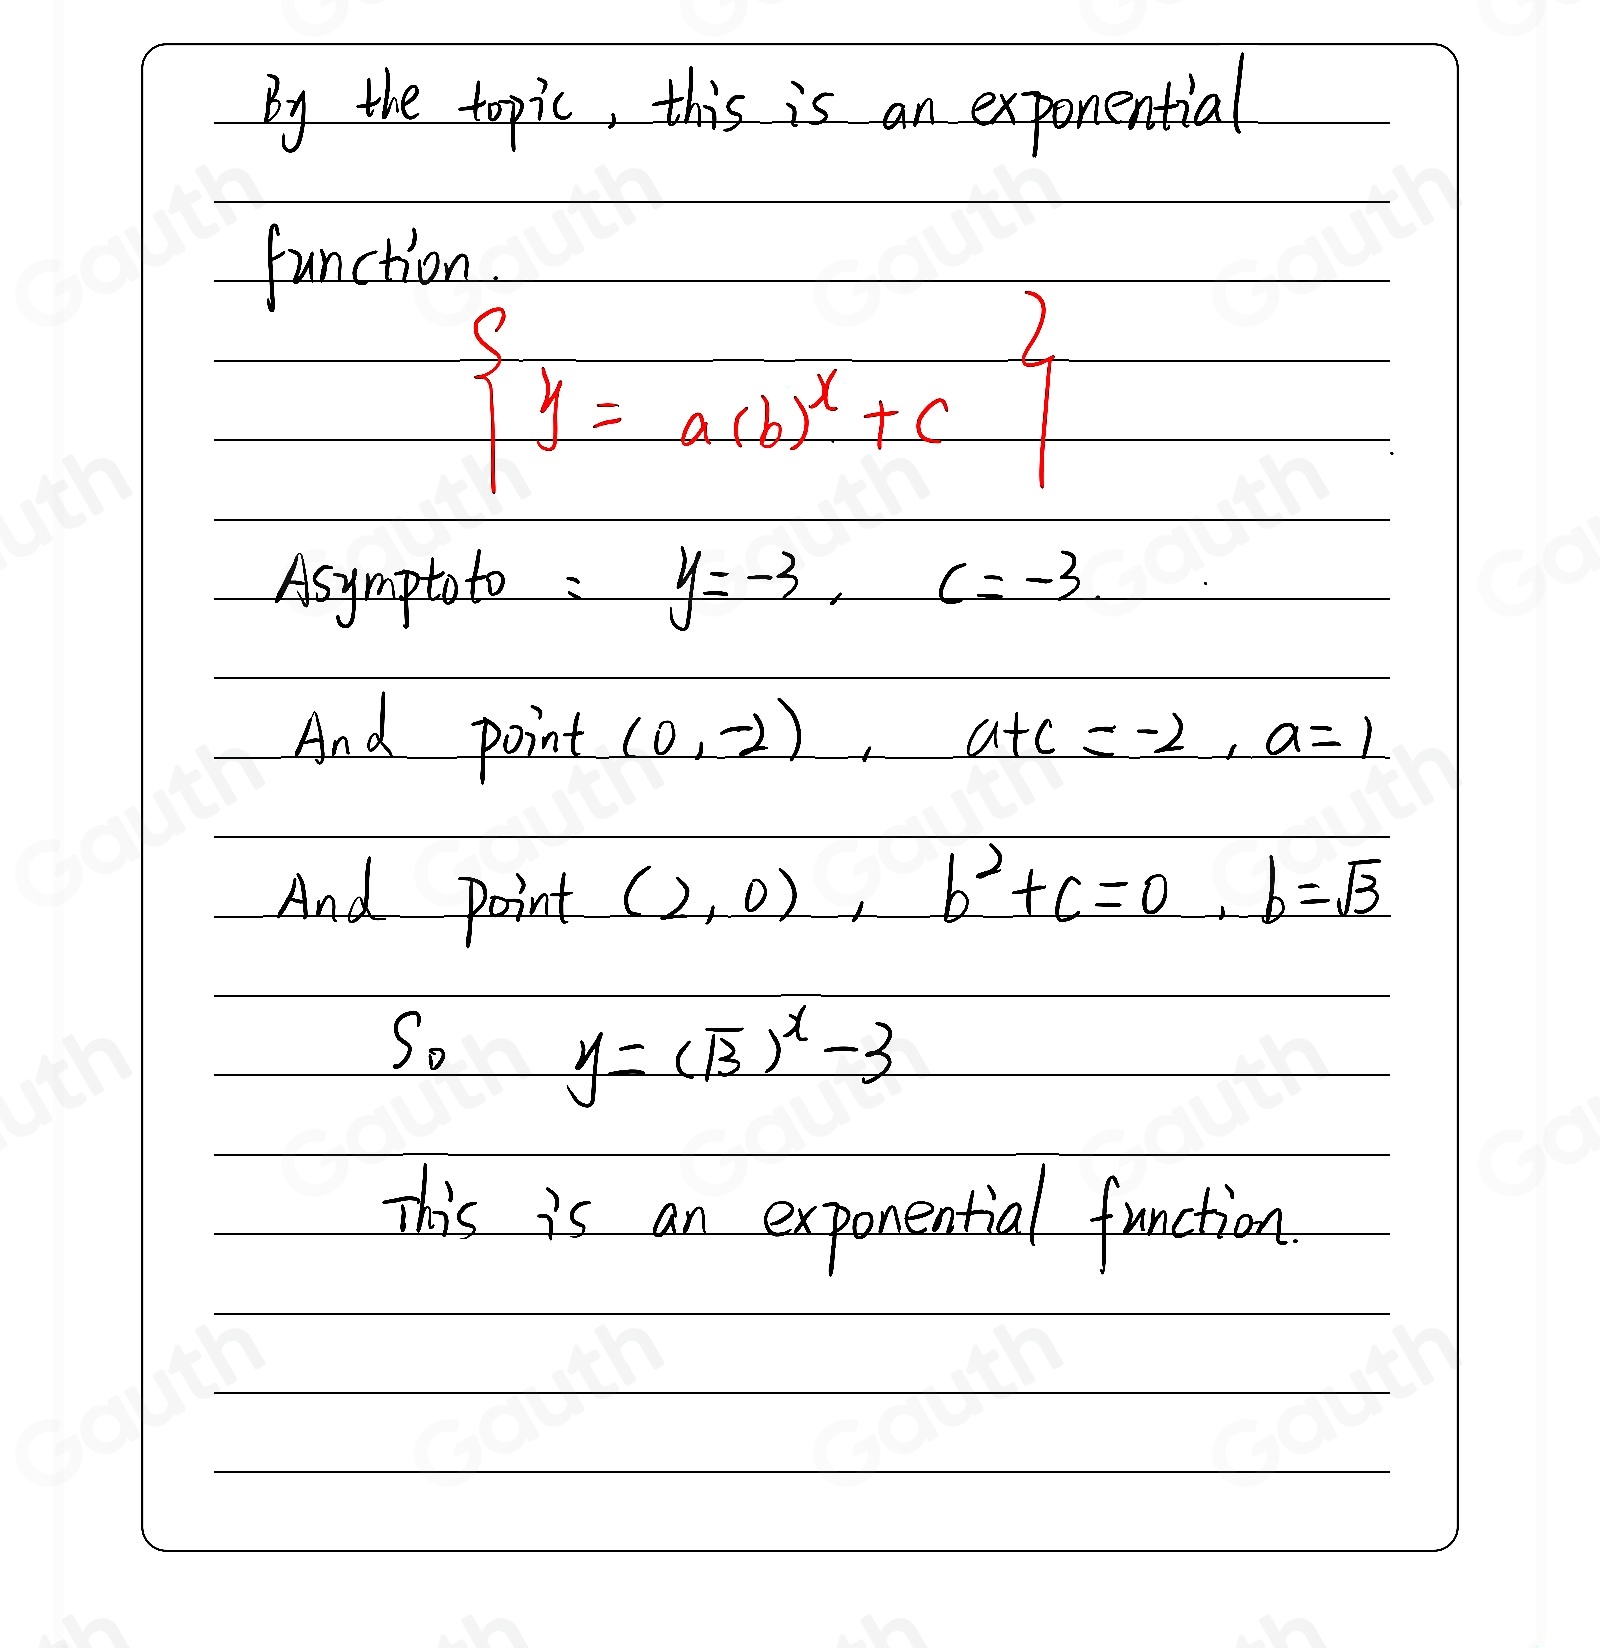 By the topic, this is an exponential
function.
{ y = a(b)^x + c }
Asymptoto : y=-3, c=-3.
And point (0,-2), a+c=-2, a=1
And point (2,0), b²+c=0, b=√3
So y=(√3)^x-3
This is an exponential function.